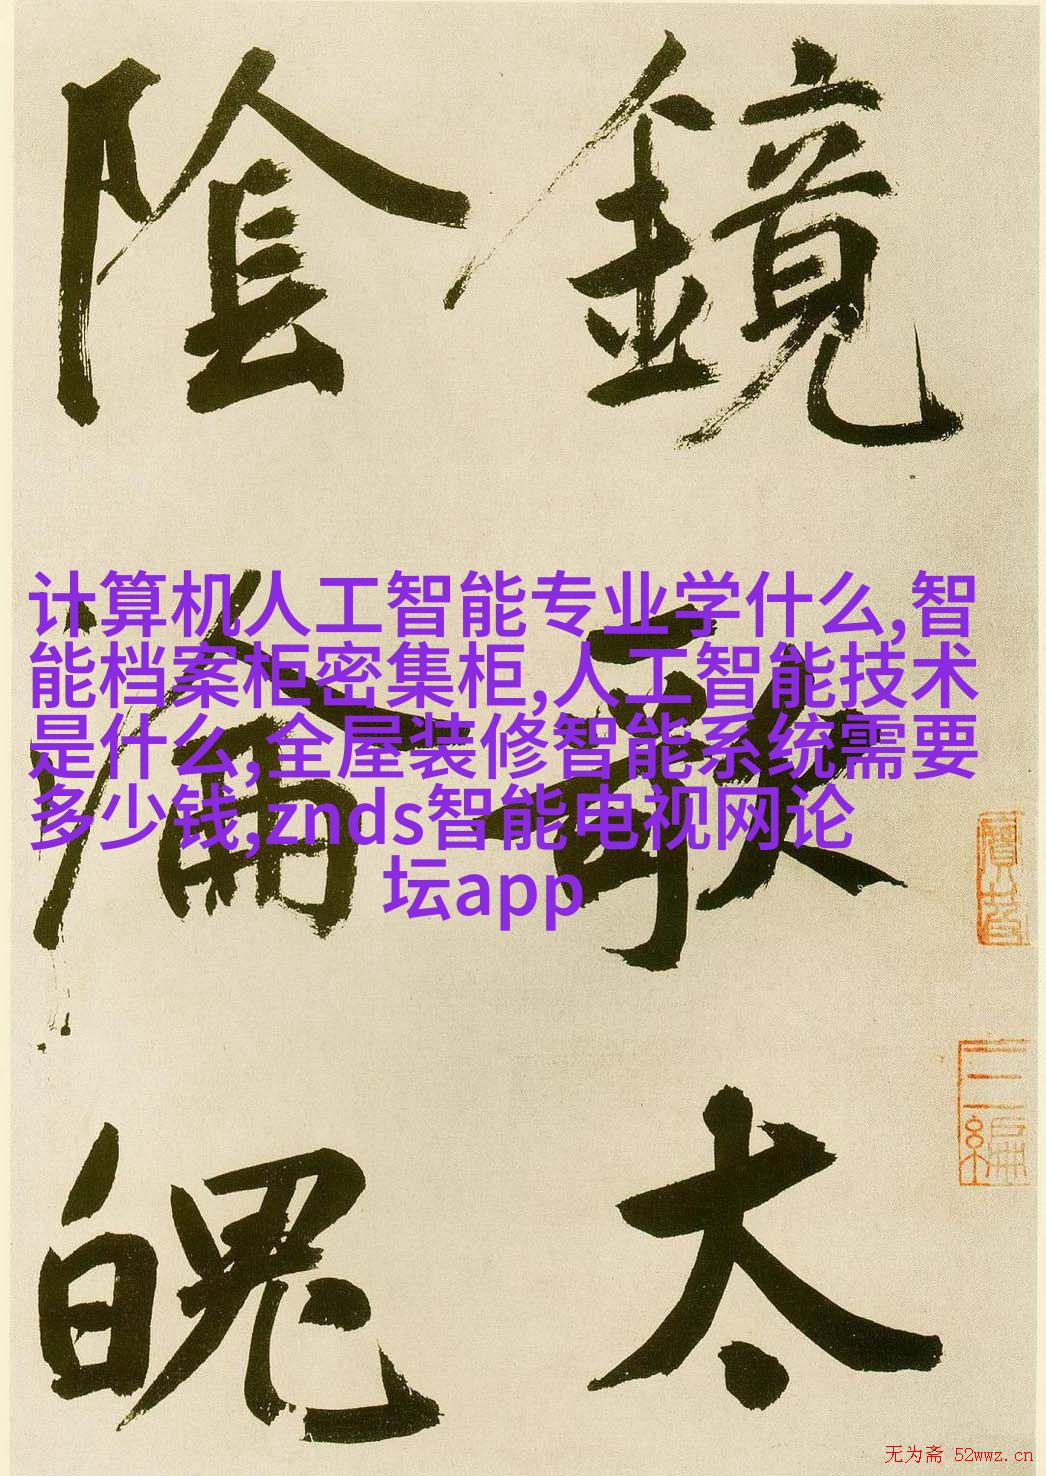 鏡歌太
陰淪魄
计算机人工智能专业学什么,智
能档案柜密集柜,人工智能技术
是什么,全屋装修智能系统需要
多少钱,znds智能电视网论
坛app
三編
无为斋 52wwz.cn